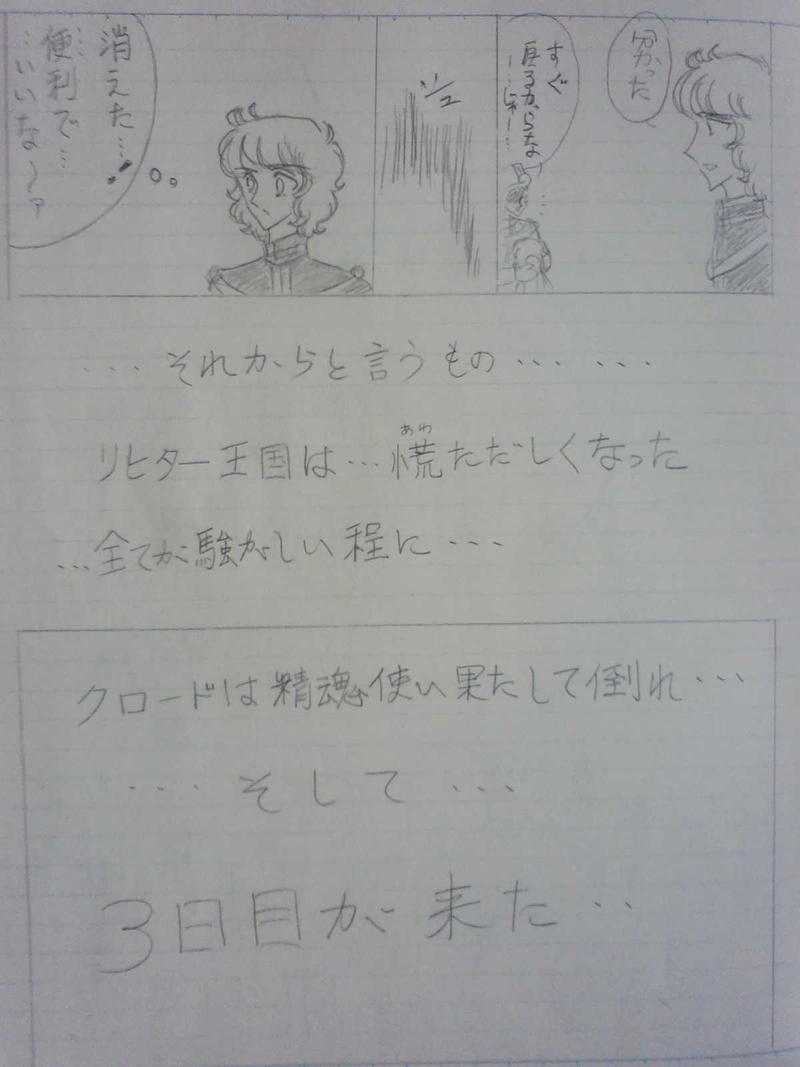 分かった
すぐ
戻るからな
シュ
消えた…
…便利で…
…いいな～
…それからと言うもの……
あわ
リヒター王国は…慌ただしくなった
…全てが騒がしい程に…
クロードは精魂使い果たして倒れ…
…そして…
3日目が来た‥